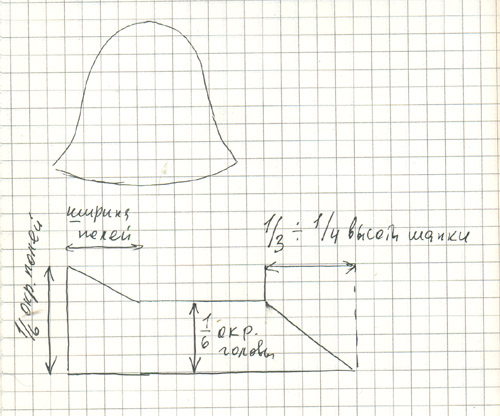 ширина
полей
1/3 ÷ 1/4 высоты шапки
1/6 окр. полей
1/6 окр.
головы